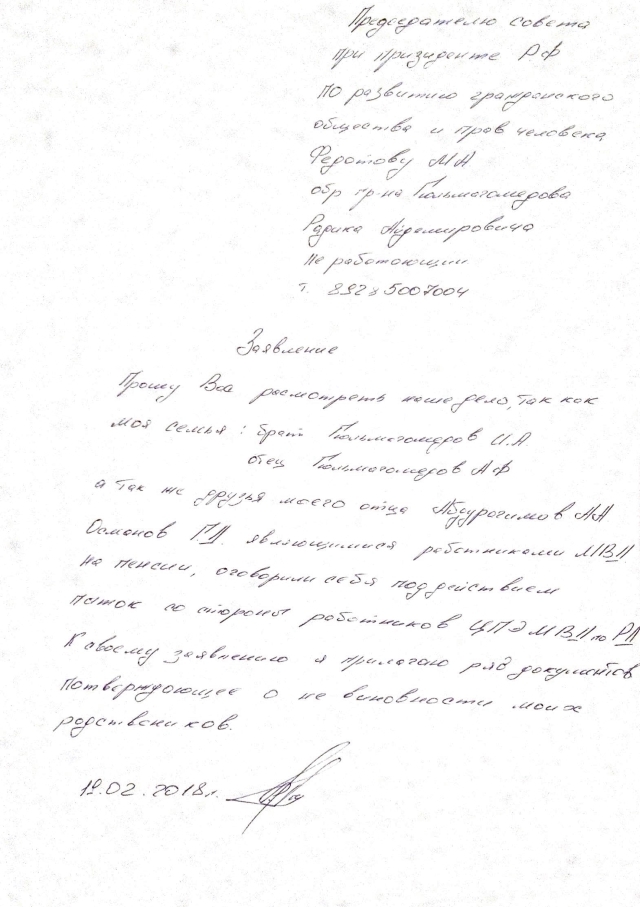 Председателю совета
при призиденте РФ
по развитию гражданского
общества и прав человека
Федотову МА
обр гр-на Гюльмагомедова
Радика Айдемировича
не работающий
т. 892 5007004
Заявление
Прошу Вас расмотреть наше дело, так как
моя семья: брат Гюльмагомедов И.А.
отец Гюльмагомедов А Ф
а так же друзья моего отца Абдурагимов АА
Османов Г.Д. являющимися работниками МВД
на пенсии, оговорили себя под действием
пыток со стороны работников ЦПЭ МВД по РД
К своему заявлению я прилагаю ряд документов
потверждающее о не виновности моих
родствеников.
19.02.2018г.